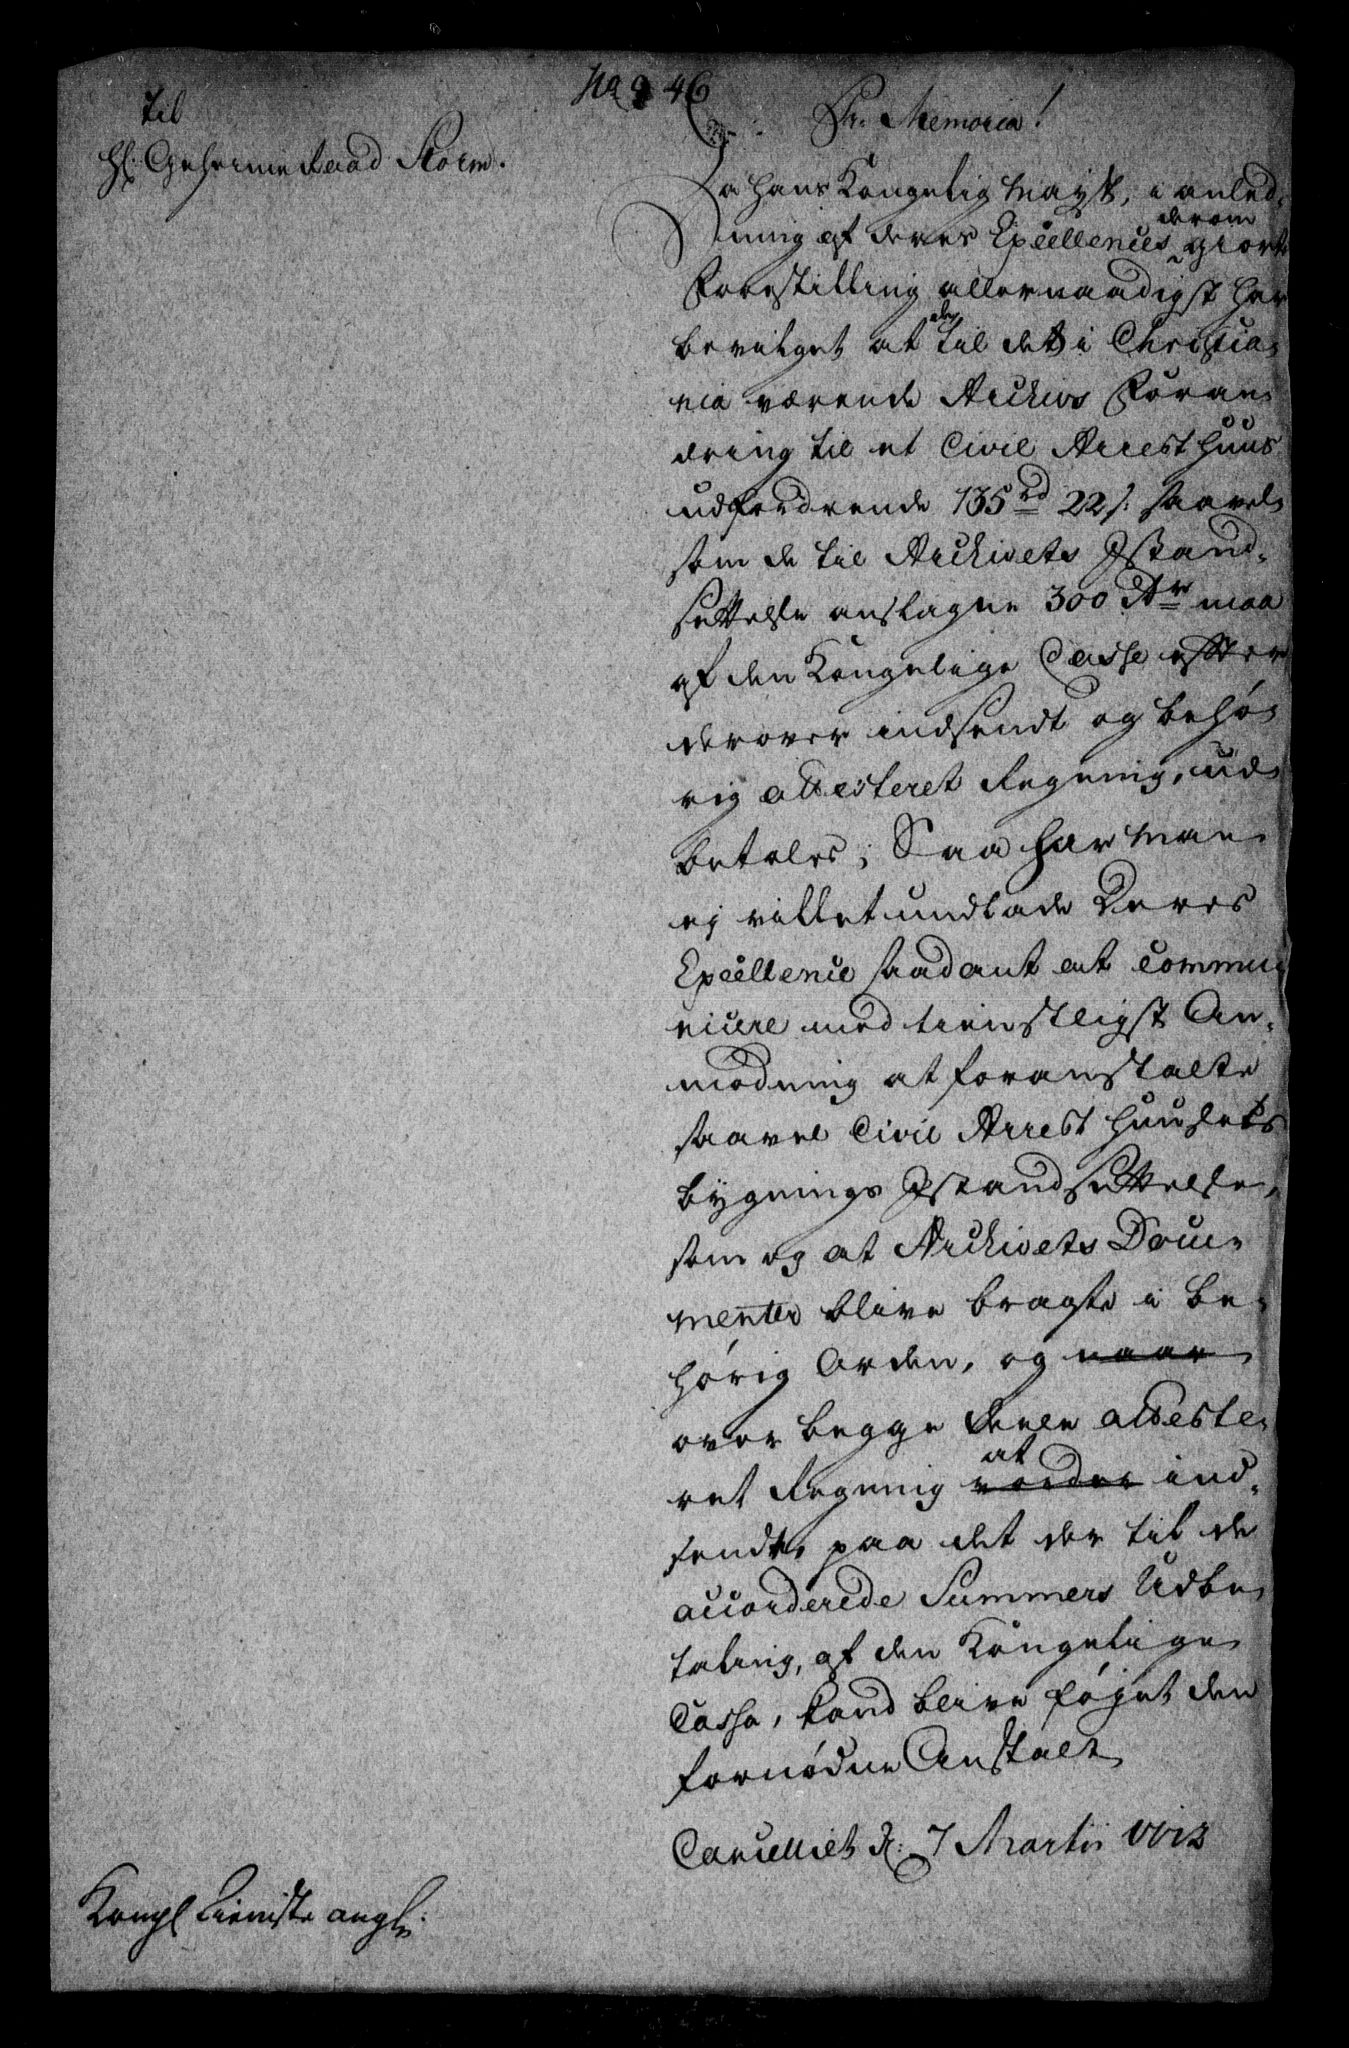 No 9 46
til
H: Geheime Raad Storm.
Pr. Memoria!
Da Hans Kongelig Mayst, i anled-
ning af deres Excellences derom giorte
Forestilling allernaadigst har
bevilget at de, til det i Christia-
nia værende Archivs Foran-
dring til et Civil Arresthuus
udfordrende 135 rd 22 s: saavel
som de til Archivets Istand-
settelse anslagne 300 rdr maa
af den Kongelige Casse efter
derover indsendt og behø-
rig attesteret Regning, ud-
betales; Saa har man
ej villet undlade Deres
Excellence saadant at commu-
nicere med tienstligst An-
modning at foranstalte
saavel Civil Arrest Huusets
bygnings Istandsettelse,
som og at Archivets Docu-
menter blive bragte i be-
hørig Orden, og naar
over begge Deele atteste-
ret Regning vorder at ind-
sendt, paa det der til de
accorderede Summers Udbe-
taling, af den Kongelige
Cassa, kand blive føjet den
fornødne Anstalt
Cancelliet d: 7 Martii
Kongl Tieniste angl: